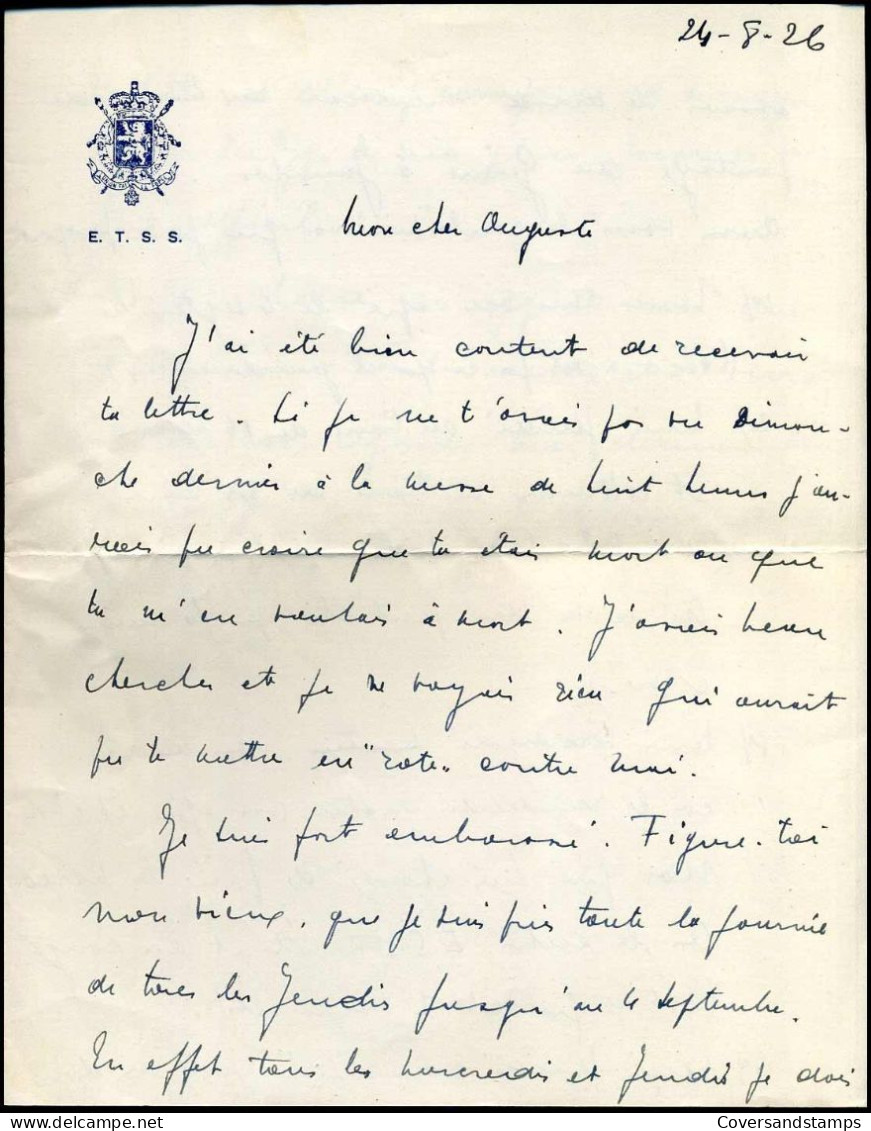 24-8-26
E. T. S. S.
Mon cher Auguste
J'ai été bien content de recevoir
ta lettre. Si je ne t'avais pas vu Diman-
che dernier à la messe de huit heures j'au-
rais pu croire que tu étais mort ou que
tu m'en voulais à mort. J'avais beau
chercher et je ne voyais rien qui aurait
pu te mettre en "rote" contre moi.
Je suis fort embarassé. Figure-toi
mon vieux, que je suis pris toute la journée
de tous les Jeudis jusqu'au 4 septembre.
En effet tous les mercredis et Jeudis je dois
Coversandstamps